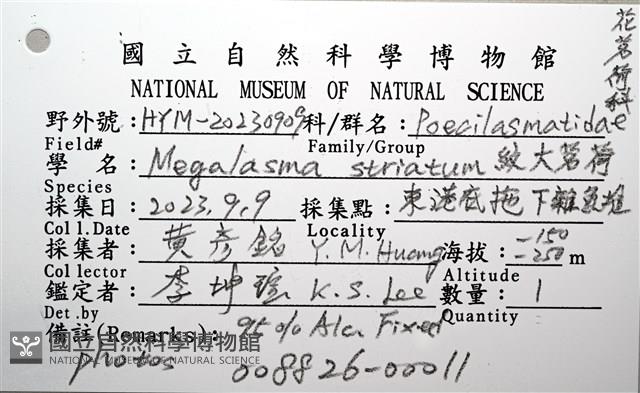 花茗荷科
國立自然科學博物館
NATIONAL MUSEUM OF NATURAL SCIENCE
野外號：HYM-20230909 科/群名：Poecilasmatidae
Field# Family/Group
學 名：Megalasma striatum 紋大茗荷
Species
採集日：2023.9.9 採集點：東港底拖下雜魚堆
Coll.Date Locality
採集者：黃彥銘 Y.M.Huang 海拔：-150 -250 m
Collector Altitude
鑑定者：李坤瑄 K.S.Lee 數量：1
Det.by Quantity
備註(Remarks)：95% Alc. Fixed
國立自然科學博物館
NATIONAL MUSEUM OF NATURAL SCIENCE
photos 008826-00011